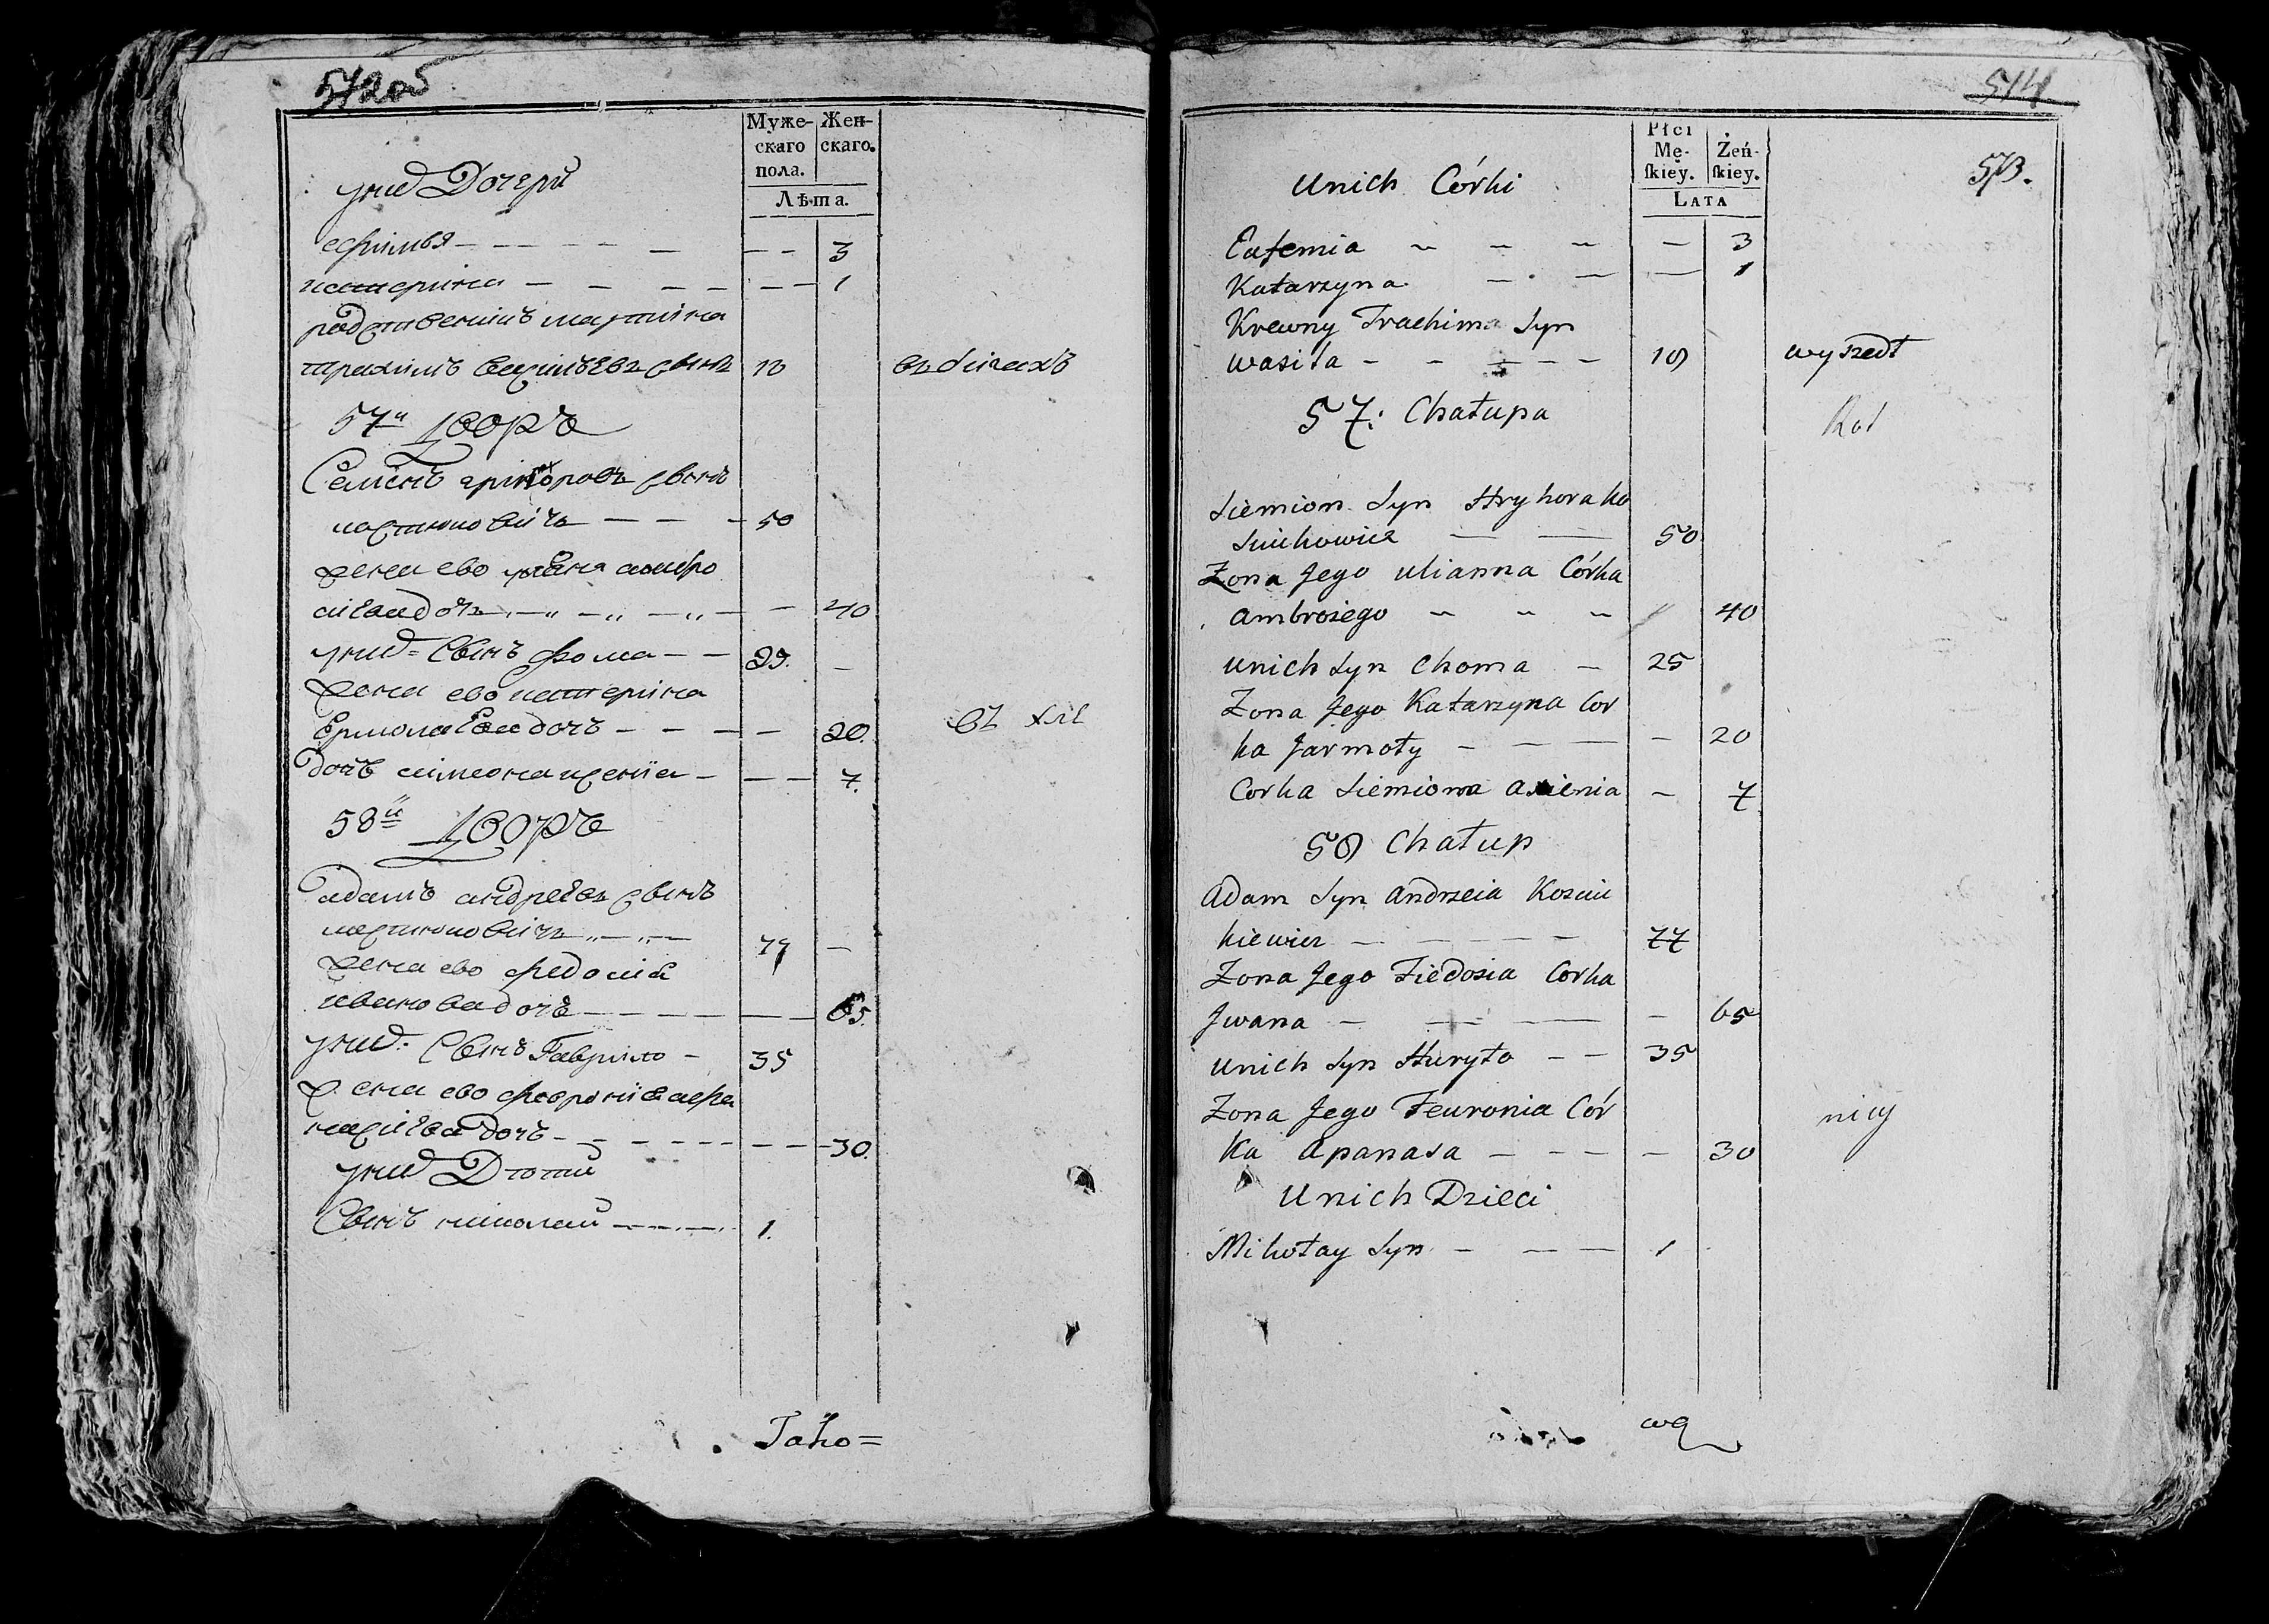 572об
Муже-
скаго
пола.
Жен-
скаго.
Лѣта.
унид Дочери
ефимья — — — — — — — 3
катерина — — — — — — — 1
родственикъ мартина
трахимъ василѣевъ сынъ 18 въ бѣгахъ
57й дворъ
Семенъ григоровъ сынъ
костюковичъ — — — 50
жена ево уляна амбро
сиева дочь — — — — 40
унид = Сынъ фома — — 25. —
жена ево катерина
Ермолаева дочь — — — — 20.
дочь симона ксения — — — 7.
58й дворъ
адамъ андреевъ сынъ
костюковичъ — — 77 —
жена ево федосия
иванова дочь — — — — — 65.
унид: Сынъ Гаврило — 35
жена ево феврония афа
насиева дочь — — — — — — 30.
унид Дѣти
Сынъ николай — — — 1.
514
573.
Płci
Mę-
ſkiey.
Żeń-
ſkiey.
LATA
Unich Córki
Eufemia — — — — 3
Katarzyna — — — 1
Krewny Trachim Syn
Wasila — — — — — 18 wyszedł
57: Chałupa
Siemion Syn Hryhora Ko
Sciukowicz — — 50
Zona Jego Ulianna Córka
Ambrozego — — — 40
Unich Syn Choma — 25
Zona Jego Katarzyna Cor
ka Jarmoły — — — — 20
Corka Siemiona Axienia — 7
58 Chałup
Adam Syn Andrzeia Kosciu
kiewicz — — — — — 77
Zona Jego Fiedosia Corka
Jwana — — — — 65
Unich Syn Hauryło — — 35
Zona Jego Feuronia Cór
Ka Apanasa — — — — 30
Unich Dzieci
Mikołay Syn — — — 1